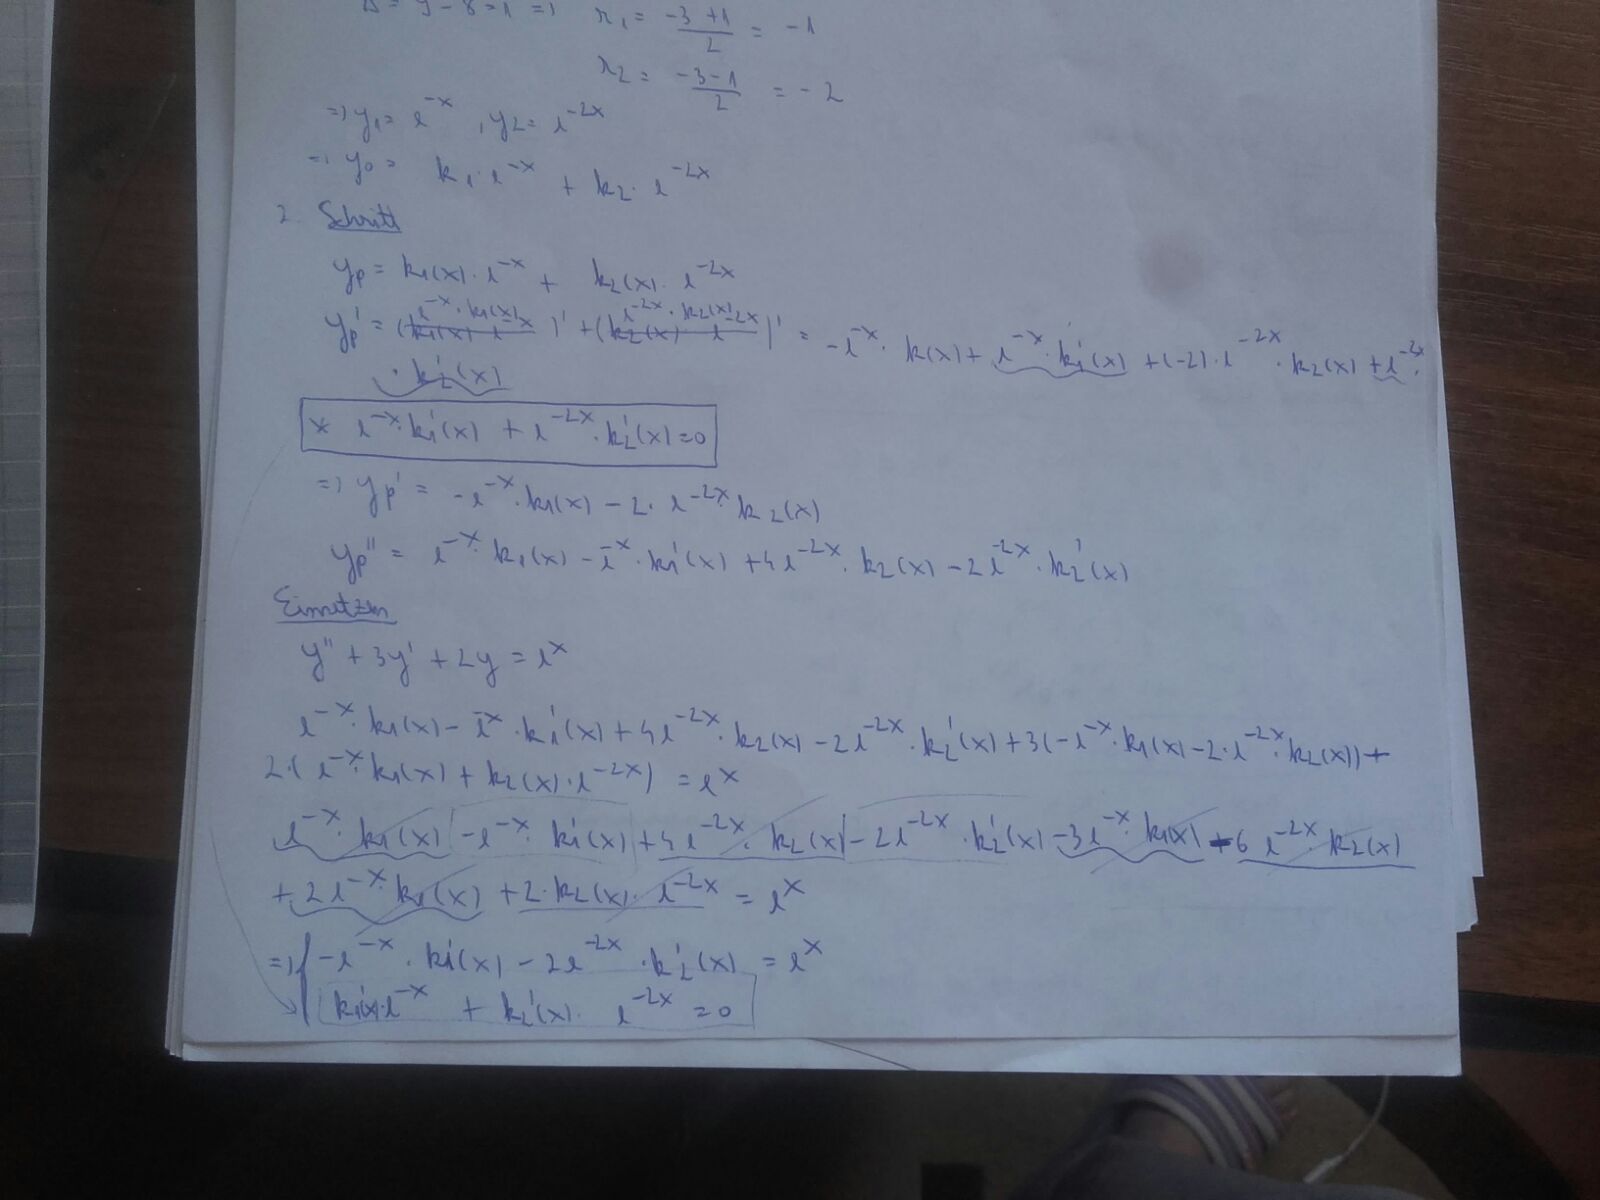 D = 9 - 8 = 1 => r₁ = (-3+1)/2 = -1
r₂ = (-3-1)/2 = -2
=> y₁ = e^(-x), y₂ = e^(-2x)
=> y₀ = k₁·e^(-x) + k₂·e^(-2x)
2. Schritt
yp = k₁(x)·e^(-x) + k₂(x)·e^(-2x)
yp' = (e^(-x)·k₁(x))' + (e^(-2x)·k₂(x))' = -e^(-x)·k(x) + e^(-x)·k₁'(x) + (-2)·e^(-2x)·k₂(x) + e^(-2x)·
·k₂'(x)
* e^(-x)·k₁'(x) + e^(-2x)·k₂'(x) = 0
=> yp' = -e^(-x)·k₁(x) - 2·e^(-2x)·k₂(x)
yp'' = e^(-x)·k₁(x) - e^(-x)·k₁'(x) + 4e^(-2x)·k₂(x) - 2e^(-2x)·k₂'(x)
Einsetzen
y'' + 3y' + 2y = e^x
e^(-x)·k₁(x) - e^(-x)·k₁'(x) + 4e^(-2x)·k₂(x) - 2e^(-2x)·k₂'(x) + 3(-e^(-x)·k₁(x) - 2·e^(-2x)·k₂(x)) +
2·(e^(-x)·k₁(x) + k₂(x)·e^(-2x)) = e^x
e^(-x)·k₁(x) - e^(-x)·k₁'(x) + 4e^(-2x)·k₂(x) - 2e^(-2x)·k₂'(x) - 3e^(-x)·k₁(x) - 6e^(-2x)·k₂(x)
+ 2e^(-x)·k₁(x) + 2·k₂(x)·e^(-2x) = e^x
=> { -e^(-x)·k₁'(x) - 2e^(-2x)·k₂'(x) = e^x
k₁'(x)·e^(-x) + k₂'(x)·e^(-2x) = 0